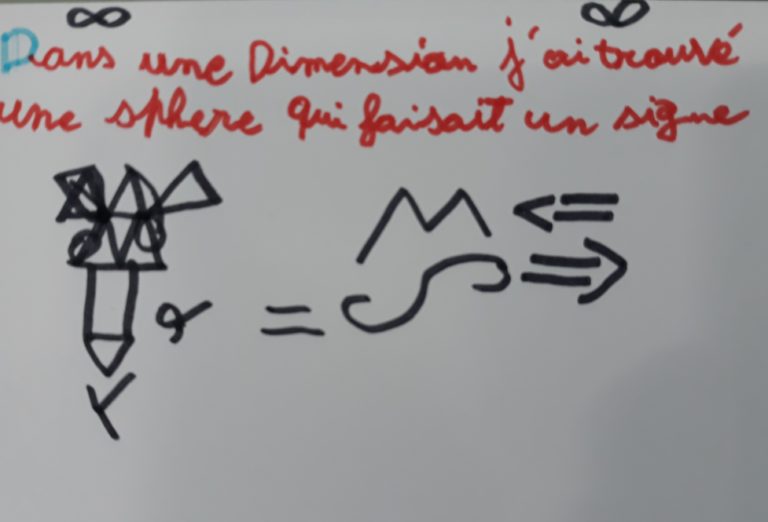 ∞ ∞
Dans une Dimension j'ai trouvé
une sphere qui faisait un signe
M <=
α = S =>
Y